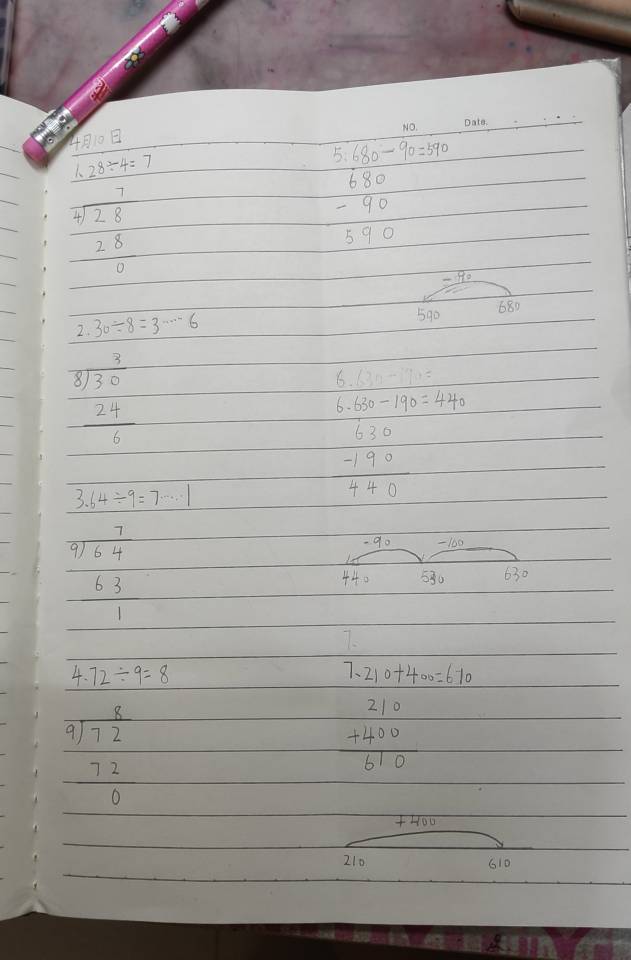 4月10日
1、28÷4=7
7
4)28
28
0
2.30÷8=3……6
3
8)30
24
6
3.64÷9=7……1
7
9)64
63
1
4.72÷9=8
8
9)72
72
0
NO. Date.
5.680-90=590
680
- 90
590
-90
590 680
6.630-190=
6.630-190=440
630
-190
440
-90 -100
440 530 630
7.
7、210+400=610
210
+400
610
+400
210 610